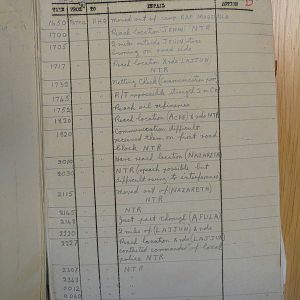 TIME FROM TO DETAIL ACTION
1650 PATROL RHQ Moved out of camp RAF
1700 Reach location JENIN NTR
1705 2 miles outside JENIN
burning on road side
1717 Reach location X rds LAJJUN
NTR
1732 Netting Check Communication poor
1745 R/T impossible strength 2 m C
1752 Reach oil refineries
1820 Reach location (ACRE) X rds NTR
1920 Communication difficult
received them on first road
block NTR
Have reach location (NAZARETH)
2030 NTR (speach possible but
difficult owing to interference)
2115 Moved out of (NAZARETH)
NTR
2145 NTR
Just past through (AFULA)
2220 2 miles of (LAJJUN) X rds
2227 Reach location X rds (LAJJUN)
contacted commander of local
police NTR
2307 NTR
2343 NTR
0012
0040